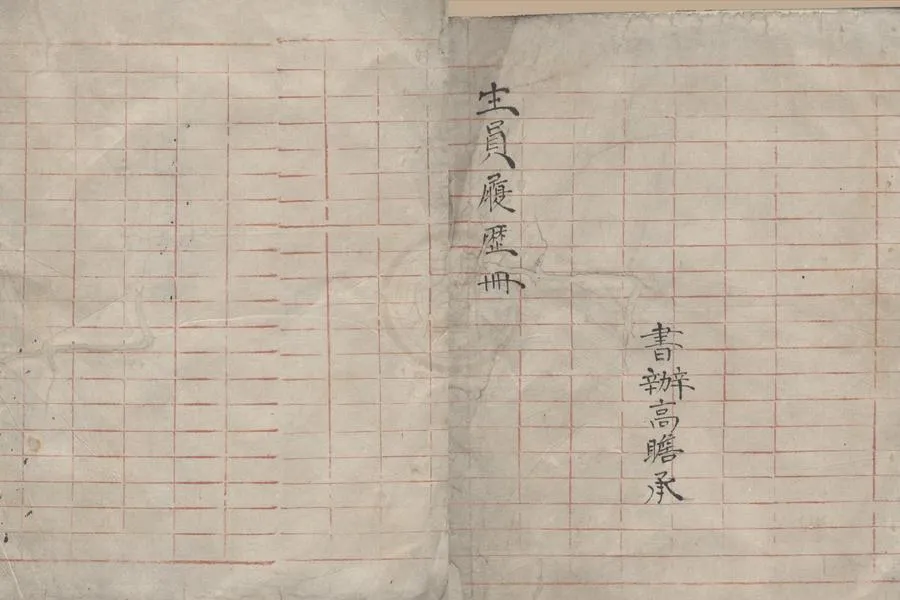 生員履歷冊
書辦高瞻承